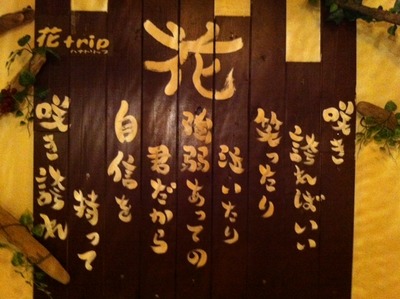 花trip
ハナトリップ
花
咲き
誇ればいい
笑ったり
泣いたり
強弱あっての
君だから
自信を
持って
咲き誇れ